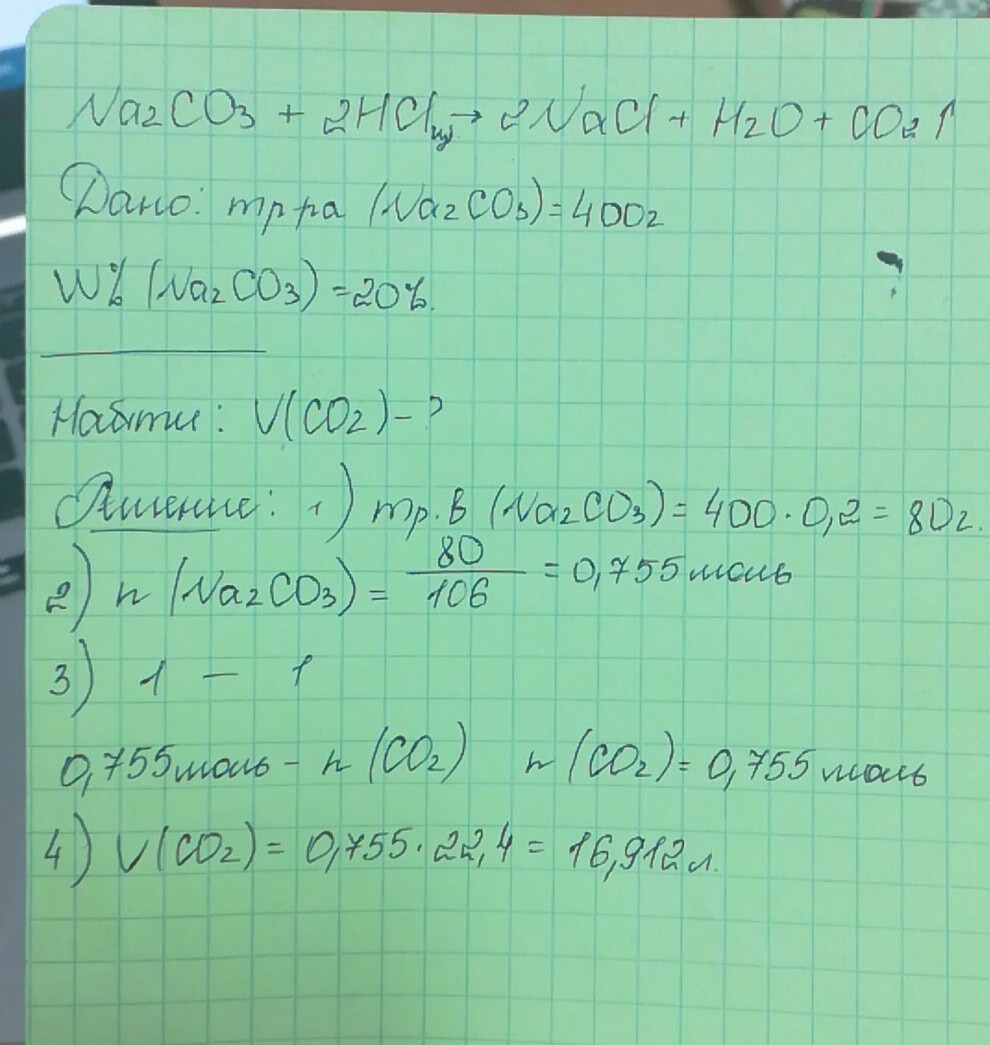 Na2CO3 + 2HCl изб → 2NaCl + H2O + CO2↑
Дано: mр-ра (Na2CO3) = 400г
W% (Na2CO3) = 20%.
Найти: V(CO2) - ?
Решение: 1) mр.в (Na2CO3) = 400 · 0,2 = 80г.
2) n (Na2CO3) = 80/106 = 0,755 моль
3) 1 — 1
0,755 моль - n (CO2) n (CO2) = 0,755 моль
4) V(CO2) = 0,755 · 22,4 = 16,912 л.